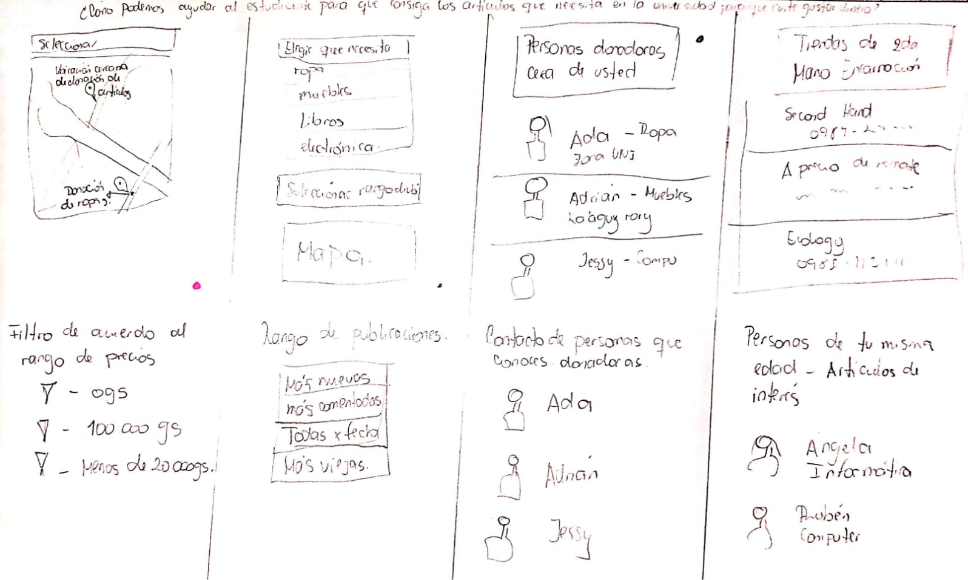 ¿Cómo podemos ayudar al estudiante para que consiga los artículos que necesita en la universidad para que gastar dinero?
Seleccionar
Ubicación cercana
de donación de
artículos
Donación
de ropas
Elegir que necesita
ropa
muebles
Libros
electrónica
Seleccionar
Mapa.
Personas donadoras
cerca de usted
Ada - Ropa
Zona UNI
Adrián - Muebles
Jessy - Compu
Tiendas de 2da
Mano
Second Hand
A precio de remate
Ecology
Filtro de acuerdo al
rango de precios
- 0gs
- 100 000 gs
- Menos de 20 000gs.
Rango de publicaciones.
Más nuevos
más comentadas
Todas x fecha
Más viejas.
Contacto de personas que
conoces donadoras.
Ada
Adrián
Jessy
Personas de tu misma
edad - Artículos de
interés
Angela
Informática
Rubén
Computer